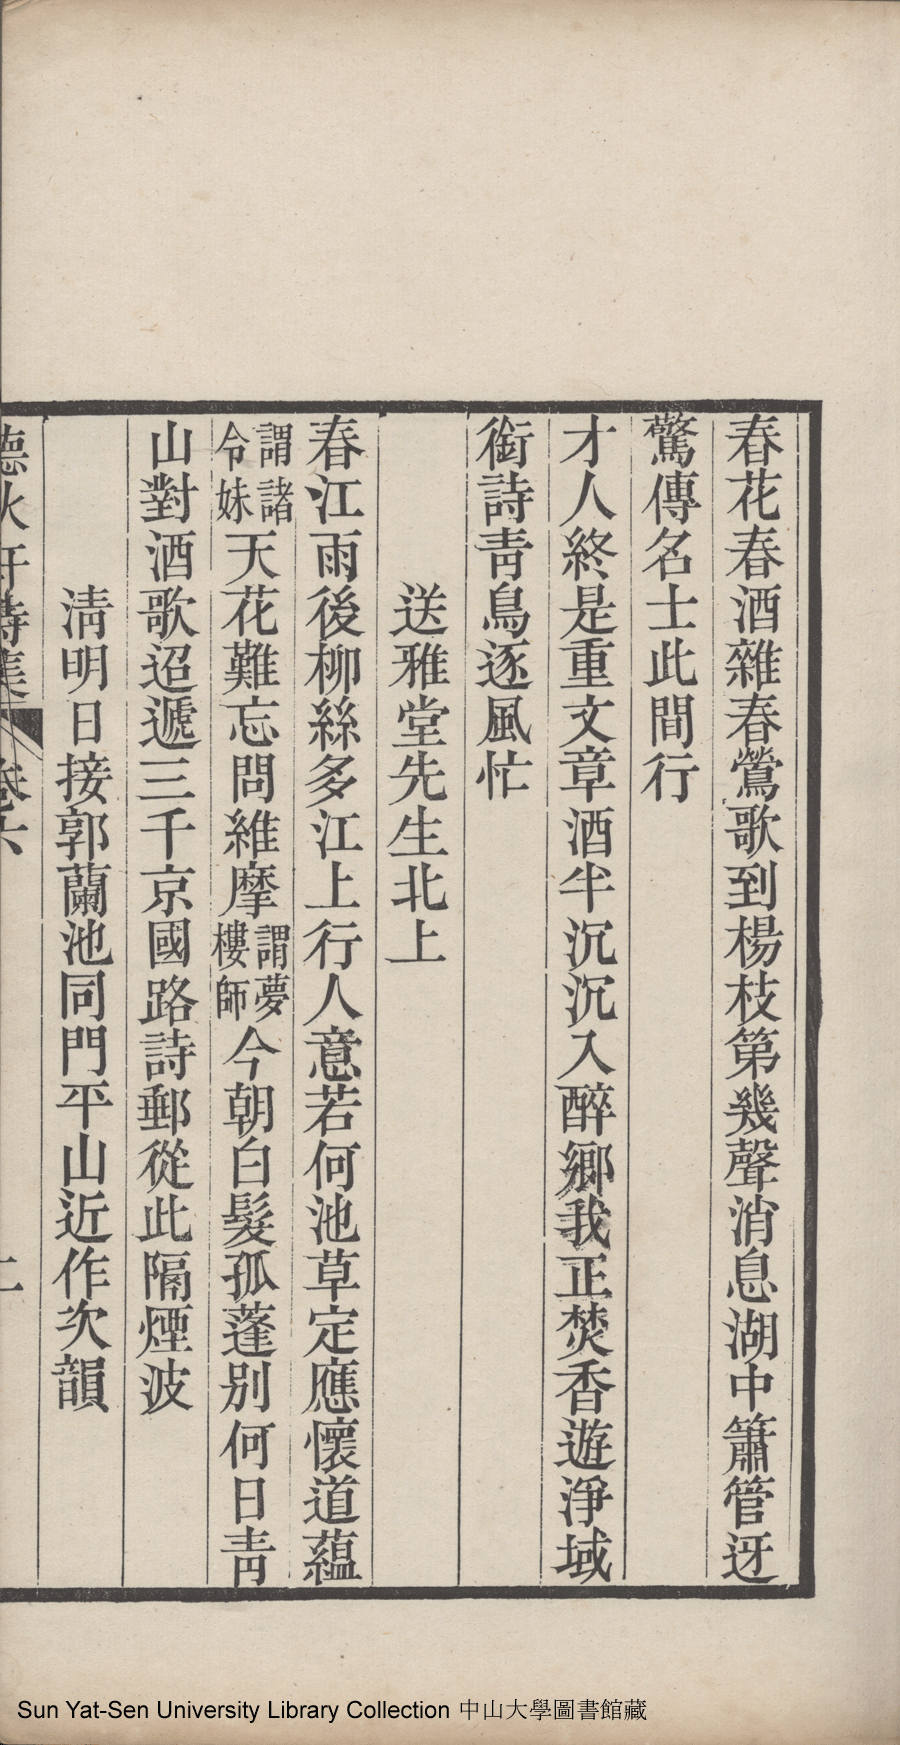 春花春酒雜春鶯歌到楊枝第幾聲消息湖中簫管迓
驚傳名士此間行
才人終是重文章酒半沉沉入醉鄉我正焚香遊淨域
銜詩青鳥逐風忙
送雅堂先生北上
春江雨後柳絲多江上行人意若何池草定應懷道蘊
謂諸令妹天花難忘問維摩謂夢樓師今朝白髮孤蓬別何日青
山對酒歌迢遞三千京國路詩郵從此隔煙波
清明日接郭蘭池同門平山近作次韻
聽秋軒詩集 卷六 二
Sun Yat-Sen University Library Collection 中山大學圖書館藏